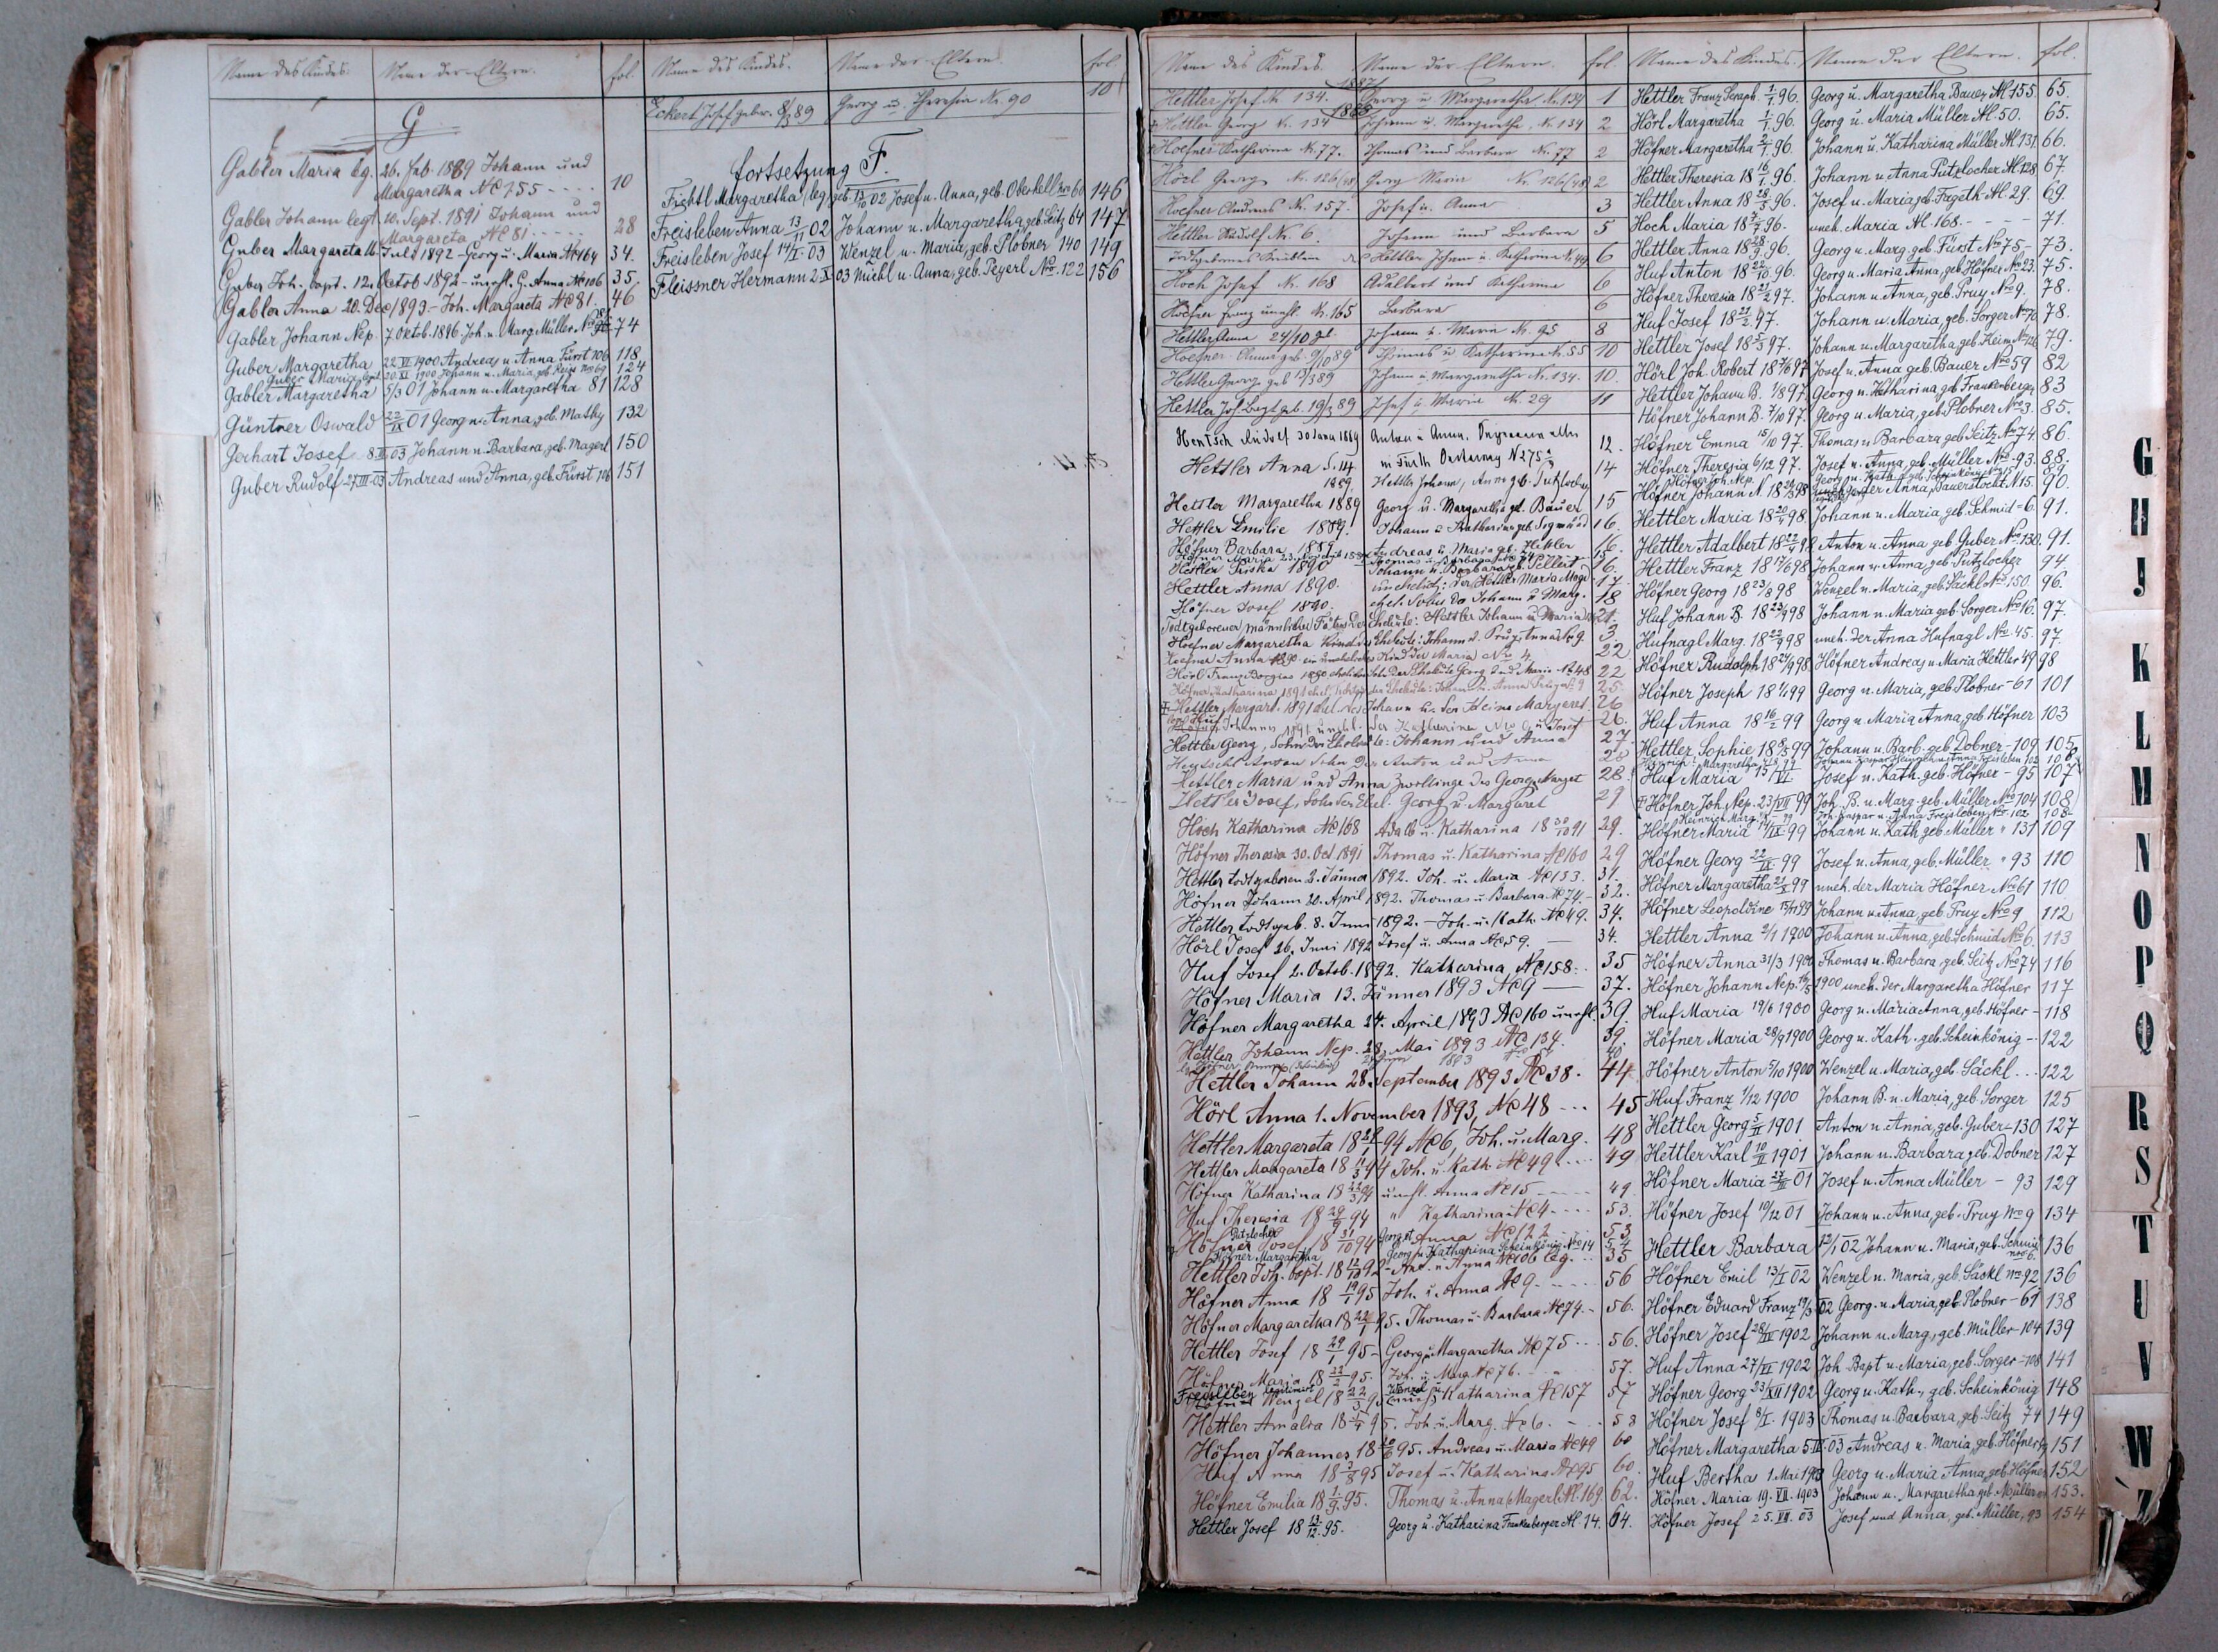 Name des Kindes.
Name der Eltern.
fol.
G
Gabler Maria leg. 26. Feb. 1889 Johann und
Margaretha № 155 - - - - 10
Gabler Johann legt. 10. Sept. 1891 Johann und
Margareta № 81 . . . . . 28
Guber Margareta Juli 1892 - Georg u. Maria № 164 34.
Guber Joh. bapt. 12. Octob 1892 - unehl. G. Anna № 106 35.
Gabler Anna 20. Dec 1893 - Joh. Margareta № 81. 46
Gabler Johann Nep. 7 Oktob. 1896. Joh. u. Marg. Müller 74
Guber Margaretha 22 VI 1900 Andreas u Anna Fürst 106 118
Guber Maria 20. XI 1900 Johann u. Maria, geb. 69 124
Gabler Margaretha 5/3 01 Johann u. Margaretha 81 128
Güntner Oswald 22/IX 01 Georg u. Anna, geb. Mathy 132
Gerhart Josef 8. II 03 Johann u. Barbara, geb. Magerl 150
Guber Rudolf 27. III 03 Andreas und Anna, geb. Fürst 106 151
Name des Kindes.
Name der Eltern.
fol.
Eckert Josef gebor. 8/3 89 Georg u. Theresia Nr. 90 10
fortsetzung F.
Fichtl Margaretha (leg) geb. 13/10 02 Josef u. Anna, geb. Oberkell 60 146
Freisleben Anna 13/11 02 Johann u. Margaretha, geb. Seitz 64 147
Freisleben Josef 14/I 03 Wenzel u. Maria, geb. Plobner 140 149
Fleissner Hermann 2 X 03 Michl u. Anna, geb. Peyerl № 122 156
Name des Kindes.
Name der Eltern.
fol.
1887
Hettler Josef N. 134. Georg u Margaretha N. 134 1
1888
Hettler Georg N. 134 Johann u. Margaretha, N. 134 2
Hoefner Katharina N. 77. Thomas und Barbara N. 77 2
Hörl Georg N. 126 Georg Maria N. 126 2
Hoefner Andreas N. 157. Josef u. Anna 3
Hettler Rudolf N. 6. Johann und Barbara 5
Hettler Johann u. Katharina N. 49 6
Hoch Josef N. 168 Adalbert und Katharina 6
Hoefner Franz unehl. N. 165 Barbara 6
Hettler Anna 24/10 Johann u. Maria N. 95 8
Hoefner Anna geb. 9/10 89 Thomas u Katharina N. 55 10
Hettler Georg geb 12/3 89 Johann u. Margaretha N. 134. 10.
Hettler Jos. Bapt geb. 19/3 89 Josef u Maria N. 29 11
Hentsch Rudolf 30 1889 Anton u Anna. 12.
Hettler Anna S. 14 1889. Hettler Johann, Anna geb. Putzlocher 14
Hettler Margaretha 1889 Georg u. Margaretha geb. Bauer 15
Hettler Emilie 1889. Johann u Katharina geb. Sigmund 16.
Höfner Barbara 1889 Andreas u. Maria geb. Hettler 16.
Höfner Maria Thomas u. Barbara 15
Hettler Friska 1890 Johann u. Barbara geb. 16.
Hettler Anna 1890. unehelich: der Hettler Maria 17.
Höfner Josef 1890. ehel. Sohn des Johann u Marg. 18
Todtgeborener männlicher Fötus der Eheleute: Hettler Johann u Maria 21.
Hoefner Margaretha Kind der Eheleute: Johann u. Anna 9. 3
Hoefner Anna 1890 ein uneheliches Kind der Maria № 4. 22
Hörl Franz Borgias 1890 ehelicher Sohn der Eheleute Georg und Maria № 48 22
Höfner Katharina 1891 ehel. Tochter der Eheleute: Johann u. Anna 9 25
Hettler Margar. 1891 ehel. des Johann u. der Margaret 26
Johann 1891 unehl. der Katharina 26.
Hettler Georg, Sohn der Eheleute: Johann und Anna 27
Hentschl Anton Sohn der Anton und Anna 28
Hettler Maria und Anna Zwillinge des Georg u Margat 28.
Hettler Josef, Sohn der Ehel. Georg u. Margaret 29
Hoch Katharina № 168 Adalb u. Katharina 18 30/10 91 29.
Höfner Theresia 30. Oct. 1891 Thomas u. Katharina № 160 29
Hettler todtgeboren 2. Jänner 1892. Joh. u. Maria № 133. 31.
Höfner Johann 20. April 1892. Thomas u. Barbara № 74. - 32.
Hettler todtgeb. 8. Juni 1892. - Joh. u. Kath. № 49. 34.
Hörl Josef 26. Juni 1892 Josef u. Anna № 59. — 34.
Huf Josef 2. Octob. 1892. Katharina, № 158. . 35
Höfner Maria 13. Jänner 1893 № 9 — 37.
Höfner Margaretha 24. April 1893 № 160 unehl. 39.
Hettler Johann Nep. 28. Mai 1893 № 134. 39.
Höfner 1893 40
Hettler Johann 28. September 1893 № 38. 44
Hörl Anna 1. November 1893, № 48 - - - 45
Hettler Margareta 94 № 6, Joh. u. Marg. 48
Hettler Margareta 94 Joh. u. Kath. № 49 . . . . 49
Höfner Katharina 18 94 unehl. Anna № 15 - - - - - 49.
Huf Theresia 18 29/9 94 " Katharina № 4 - - - - 53.
Putzlocher
Höfner Josef 18 31/10 94 Georg et Anna № 122 - - 53
Höfner Margaretha Georg u. Katharina Scheinkönig № 14 54
Hettler Joh. bapt. 18 92 - And. u. Anna № 106 leg. - - 35
Höfner Anna 18 19/1 95 Joh. u. Anna № 9 - - - - 56
Höfner Margaretha 18 95. Thomas u. Barbara № 74. - 56.
Hettler Josef 18 29/1 95 - Georg u. Margaretha № 75 - - - 56.
Höfner Maria 18 22/2 95. Joh. u. Marg. № 76. - - 57.
Freisleben legitimirt
Wenzel 18 22/3 95 Wenzel u. Katharina № 157 57
Hettler Amalia 18 95. Joh. u. Marg. № 6. - - . 58
Höfner Johannes 18 20/6 95. Andreas u. Maria № 49 60
Huf Anna 18 3/8 95 Josef u. Katharina № 95 60.
Höfner Emilia 18 1/9 95. Thomas u. Anna (Magerl № 169 62.
Hettler Josef 18 13/12 95. Georg u. Katharina Frankenberger № 14. 64.
Name des Kindes.
Name der Eltern.
fol.
Hettler Franz Seraph. 1/1 96. Georg u. Margaretha Bauer № 155. 65.
Hörl Margaretha 1/1 96. Georg u. Maria Müller № 50. 65.
Höfner Margaretha 2/1 96. Johann u. Katharina Müller № 131. 66.
Hettler Theresia 18 10/1 96. Johann u. Anna Putzlocher № 128 67.
Hettler Anna 18 28/3 96. Josef u. Maria geb. Fageth № 29. 69.
Hoch Maria 18 96. uneh. Maria № 168. - - - - 71.
Hettler Anna 18 28/9 96. Georg u. Marg. geb. Fürst № 75 - 73.
Huf Anton 18 22/10 96. Georg u. Maria Anna, geb. Höfner № 23. 75.
Höfner Theresia 18 21/2 97. Johann u. Anna, geb. Pruy № 9. 78.
Huf Josef 18 21/2 97. Johann u. Maria, geb. Sorger № 70 78.
Hettler Josef 18 97. Johann u. Margaretha, geb. Keim 79.
Hörl Joh. Robert 18 97 Josef u. Anna geb. Bauer № 59 82
Hettler Johann B. 1/8 97. Georg u. Katharina, geb. Frankenberger 83
Höfner Johann B. 7/10 97. Georg u. Maria, geb. Plobner № 3. 85.
Höfner Emma 15/10 97. Thomas u. Barbara geb. Seitz № 74. 86.
Höfner Theresia 6/12 97. Josef u. Anna, geb. Müller № 93. 88.
Höfner Joh. Nep. Georg u. Kath. geb. Scheinkönig 89
Höfner Johann N. 18 98 der Anna, Bauerstocht. № 15. 90.
Hettler Maria 18 98. Johann u. Maria, geb. Schmid - 6. 91.
Hettler Adalbert 18 98 Anton u. Anna geb. Guber № 130. 91.
Hettler Franz 18 17/6 98 Johann u. Anna, geb. Putzlocher 94
Höfner Georg 18 23/8 98 Wenzel u. Maria, geb. Säckl № 150. 96.
Huf Johann B. 18 98 Johann u. Maria geb. Sorger № 16. 97.
Hufnagl Marg. 18 98 uneh. der Anna Hufnagl № 45. 97.
Höfner Rudolph 18 98. Höfner Andreas u Maria Hettler 49 98
Höfner Joseph 18 99 Georg u. Maria, geb. Plobner - 61 101
Huf Anna 18 16/2 99 Georg u. Maria Anna, geb. Höfner 103
Hettler Sophie 18 99 Johann u. Barb. geb. Dobner - 109 105
Margaretha Johann Kaspar u Anna Freisleben 102 108
Huf Maria 15/VI Josef u. Kath. geb. Höfner - 95 107
Höfner Joh. Nep. 23/VII 99 Joh. B. u. Marg. geb. Müller № 104 108
Heinrich Marg. Joh. Kaspar u. Anna Freisleben № 102 108
Höfner Maria 14/IX 99 Johann u. Kath. geb. Müller " 131 109
Höfner Georg 22/IX 99 Josef u. Anna, geb. Müller " 93 110
Höfner Margaretha 21/X 99 uneh. der Maria Höfner № 61 110
Höfner Leopoldine 99 Johann u. Anna, geb. Pruy № 9 112
Hettler Anna 2/1 1900 Johann u. Anna, geb. Schmid № 6. 113
Höfner Anna 31/3 1900 Thomas u. Barbara, geb. Seitz № 74 116
Höfner Johann Nep. 1900 uneh. der Margaretha Höfner 117
Huf Maria 19/6 1900 Georg u. Maria Anna, geb. Höfner - 118
Höfner Maria 28/9 1900 Georg u. Kath. geb. Scheinkönig - 122
Höfner Anton 5/10 1900 Wenzel u. Maria, geb. Säckl . . . 122
Huf Franz 1/12 1900 Johann B. u. Maria, geb. Sorger 125
Hettler Georg 5/II 1901 Anton u. Anna, geb. Guber - 130 127
Hettler Karl 10/II 1901 Johann u. Barbara geb. Dobner 127
Höfner Maria 01 Josef u. Anna Müller - 93 129
Höfner Josef 10/12 01 Johann u. Anna, geb. Pruy № 9 134
Hettler Barbara 12/1 02 Johann u. Maria, geb. Schmid № 6. 136
Höfner Emil 13/I 02 Wenzel u. Maria, geb. Säckl № 92 136
Höfner Eduard Franz 19/3 02 Georg u. Maria, geb. Plobner - 61 138
Höfner Josef 28/IV 1902 Johann u. Marg., geb. Müller - 104 139
Huf Anna 27/VI 1902 Joh. Bapt u. Maria, geb. Sorger - 108 141
Höfner Georg 23/XII 1902 Georg u. Kath., geb. Scheinkönig 148
Höfner Josef 8/I. 1903 Thomas u. Barbara, geb. Seitz 74 149
Höfner Margaretha 5. 03 Andreas u. Maria, geb. Höfner 151
Huf Bertha 1. Mai 1903 Georg u. Maria Anna, geb. Höfner 152
Höfner Maria 19. VII. 1903 Johann u. Margaretha geb. Müller 153.
Höfner Josef 25. VII. 03 Josef und Anna, geb. Müller, 93 154
G
H
J
K
L
M
N
O
P
Q
R
S
T
U
V
W
Z